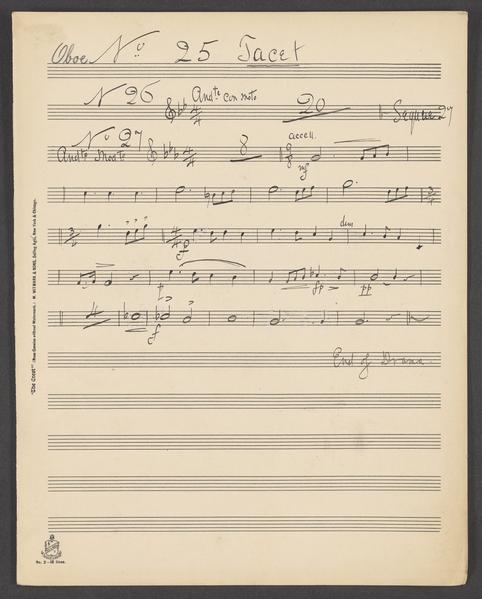 Oboe No 25 Tacet
No 26 Andte con moto 20 Segue 27
No 27
Andte Modto 8 accell. mf
dim
f
p fp pp
4 f
End of Drama.
"The Crest" M. WITMARK & SONS, Selling Agts, New York & Chicago.
No. 2 - 12 lines.